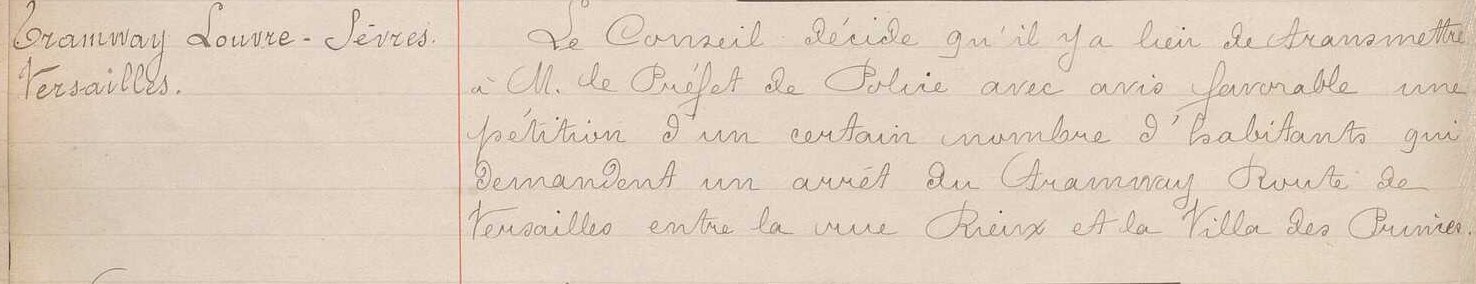 Tramway Louvre - Sèvres.
Versailles.
Le Conseil décide qu'il y a lieu de transmettre
à M. le Préfet de Police avec avis favorable une
pétition d'un certain nombre d'habitants qui
demandent un arrêt du tramway Route de
Versailles entre la rue Rieux et la Villa des Princes.